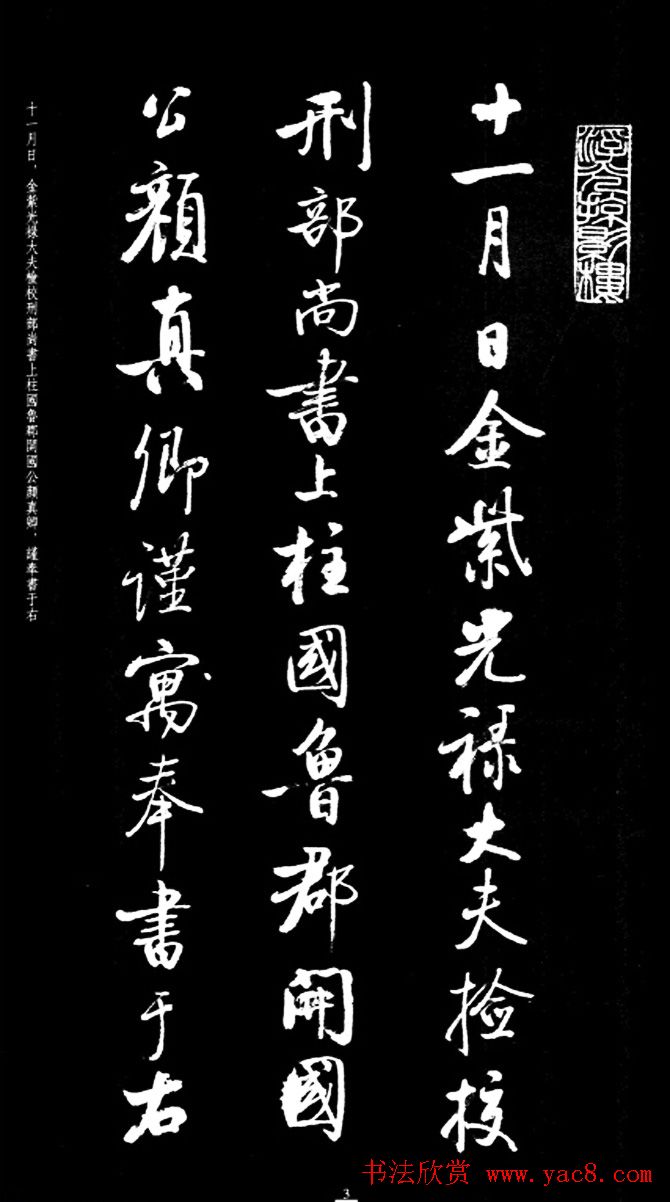 十一月日金紫光禄大夫捡校
刑部尚書上柱國魯郡開國
公顏真卿謹寓奉書于右
十一月日，金紫光祿大夫檢校刑部尚書上柱國魯郡開國公顏真卿，謹奉書于右
3
书法欣赏 www.yac8.com